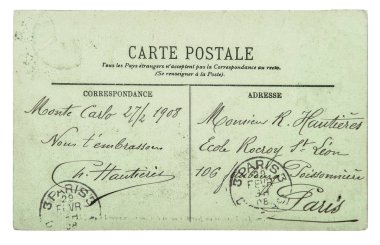 CARTE POSTALE
Tous les Pays étrangers n'acceptent pas la Correspondance au recto.
(Se renseigner à la Poste)
CORRESPONDANCE
ADRESSE
Monte Carlo 27/2 1908
Nous t'embrassons
Ch. Hautières
Monsieur R. Hautières
Ecole Rocroy St Léon
106 Poissonnière
Paris
3 PARIS 3
29
FEVR
08
3 PARIS 3
29
FEVR
08